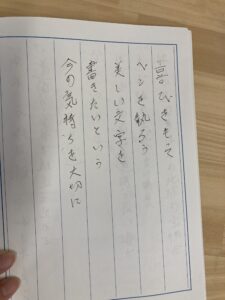 喜びをもって
ペンを執ろう
美しい文字を
書きたいという
今の気持ちを大切に